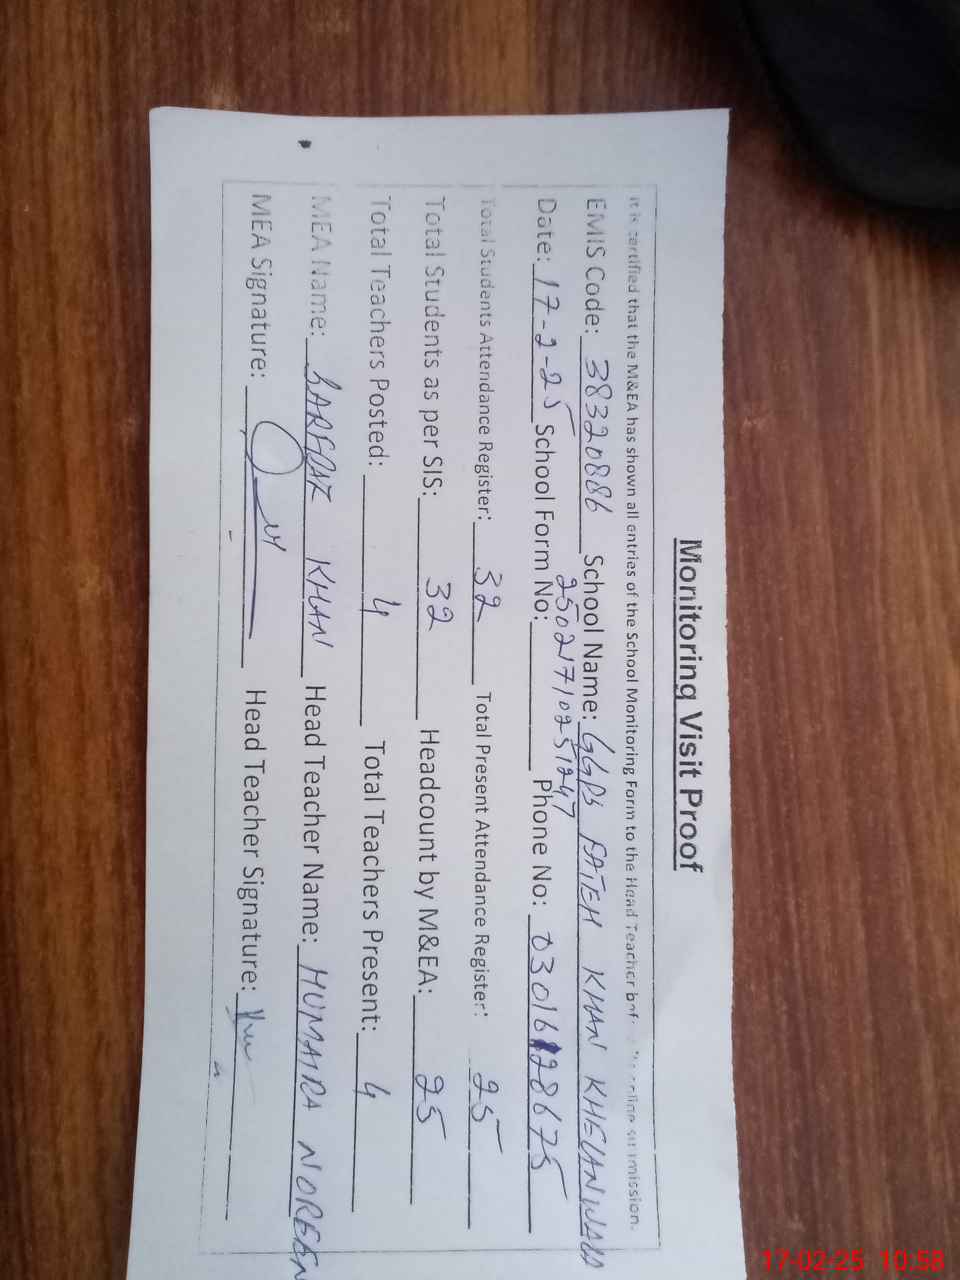 Monitoring Visit Proof
It is certified that the M&EA has shown all entries of the School Monitoring Form to the Head Teacher before the online submission.
EMIS Code: 38320886 School Name: GGPS FATEH KHAN KHELANWALA
Date: 17-2-25 School Form No: 25021710251247 Phone No: 03016128675
Total Students Attendance Register: 32 Total Present Attendance Register: 25
Total Students as per SIS: 32 Headcount by M&EA: 25
Total Teachers Posted: 4 Total Teachers Present: 4
MEA Name: KHAN Head Teacher Name: HUMAIRA NOREEN
MEA Signature: Head Teacher Signature:
17-02-25 10:58